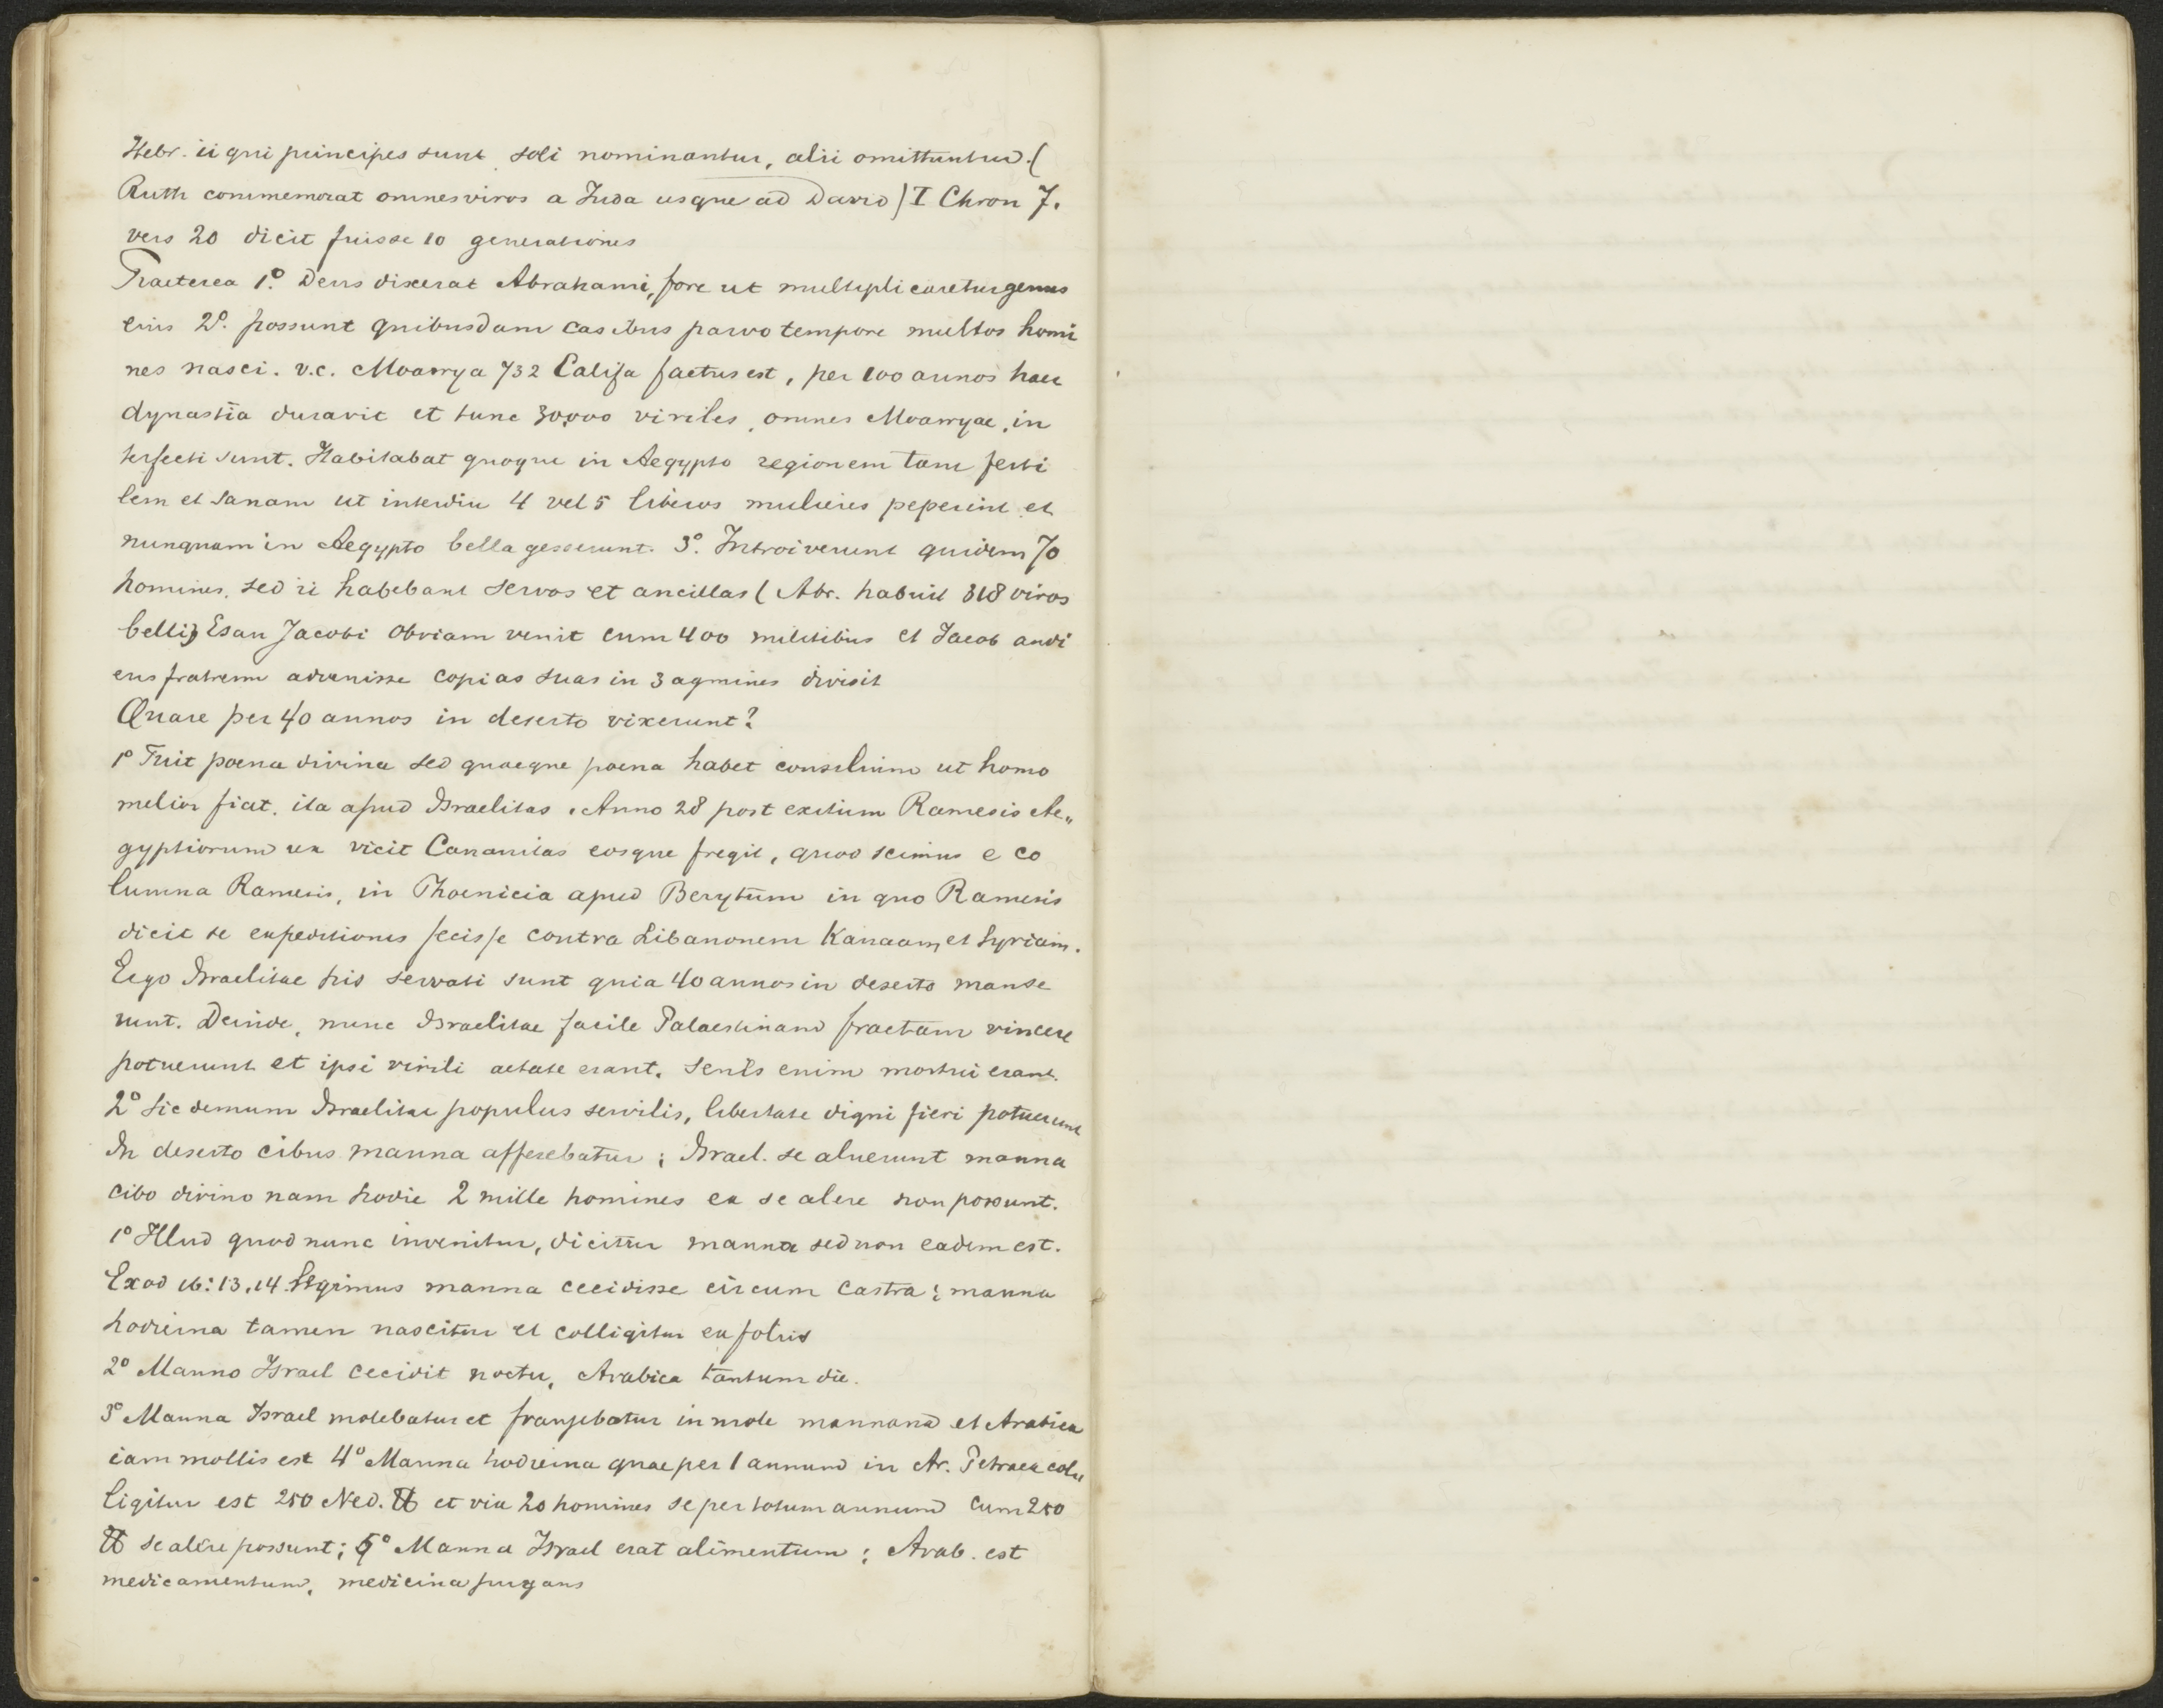 Hebr. ii qui principes sunt soli nominantur, alii omittuntur. (
Ruth commemorat omnes viros a Juda usque ad David) I Chron 7.
vers 20 dicit fuisse 10 generationes
Praeterea 1º. Deus dixerat Abrahami, fore ut multiplicaretur genus
eius 2º. possunt quibusdam casibus parvo tempore multos homi
nes nasci. v.c. Moawya 732 Califa factus est, per 100 annos haec
dynastia duravit et tunc 30,000 viriles, omnes Moawyae, in
terfecti sunt. Habitabat quoque in Aegypto regionem tam ferti
lem et sanam ut interdiu 4 vel 5 liberos mulieres peperint et
nunquam in Aegypto bella gesserunt. 3º. Introiverunt quidem 70
homines, sed ii habebant servos et ancillas (Abr. habuit 318 viros
belli) Esau Jacobi obviam venit cum 400 militibus et Jacob audi
ens fratrem advenisse copias suas in 3 agmines divisit
Quare per 40 annos in deserto vixerunt?
1º Fuit poena divina sed quaeque poena habet consilium ut homo
melior fiat. ita apud Israelitas. Anno 28 post exitium Ramesis Ae„
gyptiorum rex vicit Cananitas eosque fregit, quod scimus e co
lumna Ramesis, in Phoenicia apud Berytum in quo Ramesis
dicit se expeditiones fecisse contra Libanonem Kanaam, et Syriam.
Ergo Israelitae his servati sunt quia 40 annos in deserto manse
runt. Deinde, nunc Israelitae facile Palaestinam fractam vincere
potuerunt et ipsi virili aetate erant. senes enim mortui erant.
2º Sic demum Israelitae populus servilis, libertate digni fieri potuerunt
In deserto cibus manna afferebatur; Israel. se aluerunt manna
cibo divino nam hodie 2 mille homines ea se alere non possunt.
1º Illud quod nunc invenitur, dicitur manna sed non eadem est.
Exod 16:13.14 legimus manna cecidisse circum castra; manna
hodierna tamen nascitur et colligitur ex foliis
2º Manno Israel cecidit noctu, Arabica tantum die.
3º Manna Israel molebatur et frangebatur in mole mannana et Arabica
iam mollis est 4º Manna hodierna quae per 1 annum in Ar. Petraea col
ligitur est 250 Ned. ℔ et vix 20 homines se per totum annum cum 250
℔ se alere possunt; 5º Manna Israel erat alimentum; Arab. est
medicamentum, medicina purgans